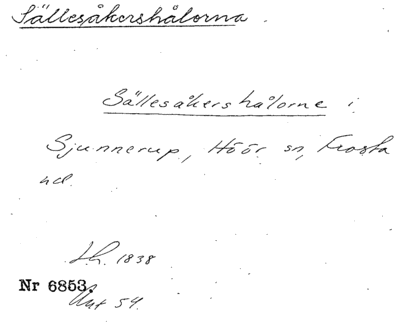 Sällesåkershålorna.
Sällesåkershålorne i
Sjunnerup, Höör sn, Frosta
hd.
Lh. 1838
Nr 6853.
Ant 54.